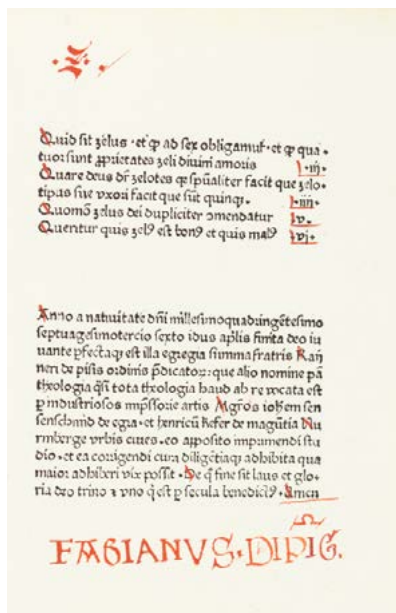 ·Z·
Quid sit zelus · et qꝫ ad sex obligamur · et qꝫ qua-
tuor sunt ꝓprietates zeli diuini amoris l·iij·
Quare deus dr̄ zelotes qꝫ spūaliter facit que zelo-
tipus siue vxori facit que sūt quinqꝫ. l·iiij·
Quomō zelus dei dupliciter ↄmendatur l·v.
Quentur quis zelꝰ est bonꝰ et quis malꝰ l·vj·
Anno a natiuitate dn̄i millesimoquadringētesimo
septuagesimotercio sexto idus apl̄is finita deo iu
uante ꝑfectaqꝫ est illa egregia summa fratris Raij
neri de pisis ordinis p̄dicatoꝝ: que alio nomine pā
theologia qͣsi tota theologia haud ab re vocata est
ꝑ industriosos imp̄ssorie artis Mgr̄os ioh̄em sen
senschmid de egra · et henricū kefer de magūtia Nu
rmberge vrbis ciues · eo apposito imprimendi stu
dio · et ea corrigendi cura diligētiaqꝫ adhibita qua
maior adhiberi vix possit · De qͦ fine sit laus et glo-
ria deo trino ⁊ vno qͥ est ꝑ secula benedictꝰ · Amen
FABIANVS · DIPIG.